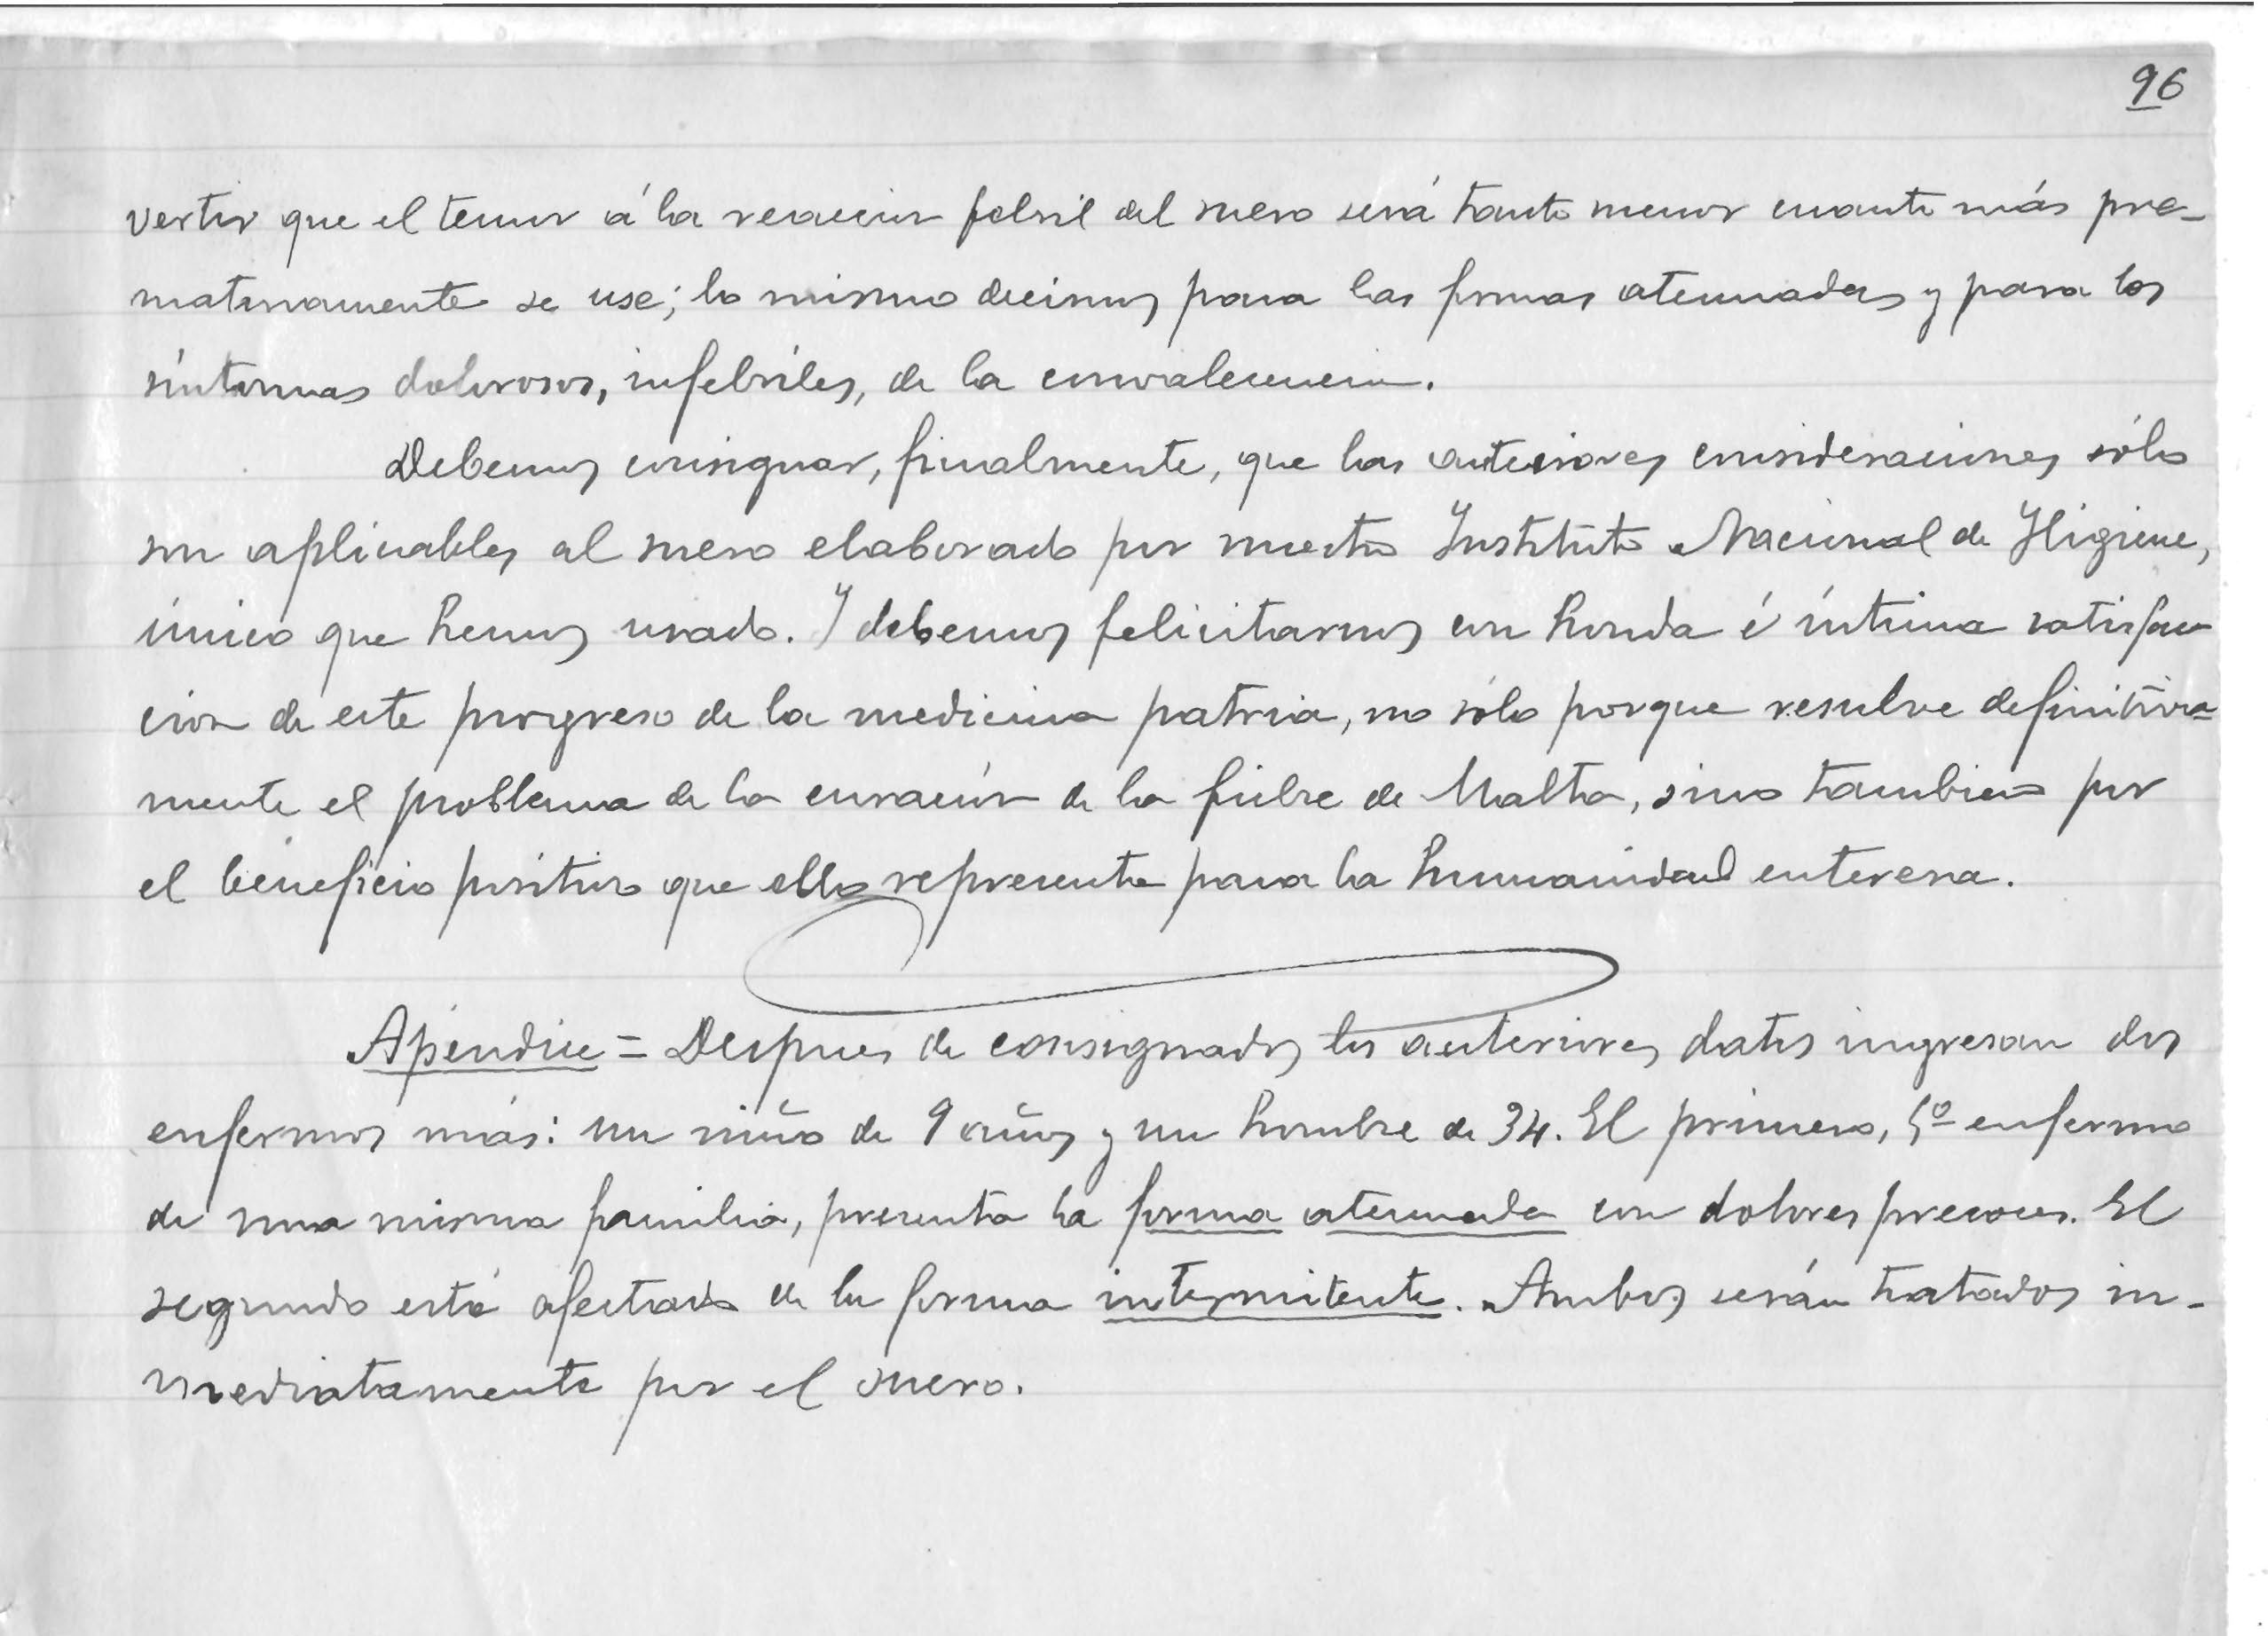 96
vertir que el temor á la reacción febril del suero será tanto menor cuanto más pre-
maturamente se use; lo mismo decimos para las formas atenuadas y para los
síntomas dolorosos, infebriles, de la convalecencia.
Debemos consignar, finalmente, que las anteriores consideraciones sólo
son aplicables al suero elaborado por nuestro Instituto Nacional de Higiene,
único que hemos usado. Y debemos felicitarnos con honda é íntima satisfac
ción de este progreso de la medicina patria, no sólo porque resuelve definitiva=
mente el problema de la curación de la fiebre de Malta, sino tambien por
el beneficio positivo que ello representa para la humanidad enterena.
Apéndice = Despues de consignados los anteriores datos ingresan dos
enfermos más: un niño de 9 años y un hombre de 34. El primero, 5º enfermo
de una misma familia, presenta la forma atenuada con dolores precoces. El
segundo está afectado de la forma intermitente. Ambos serán tratados in-
mediatamente por el suero.